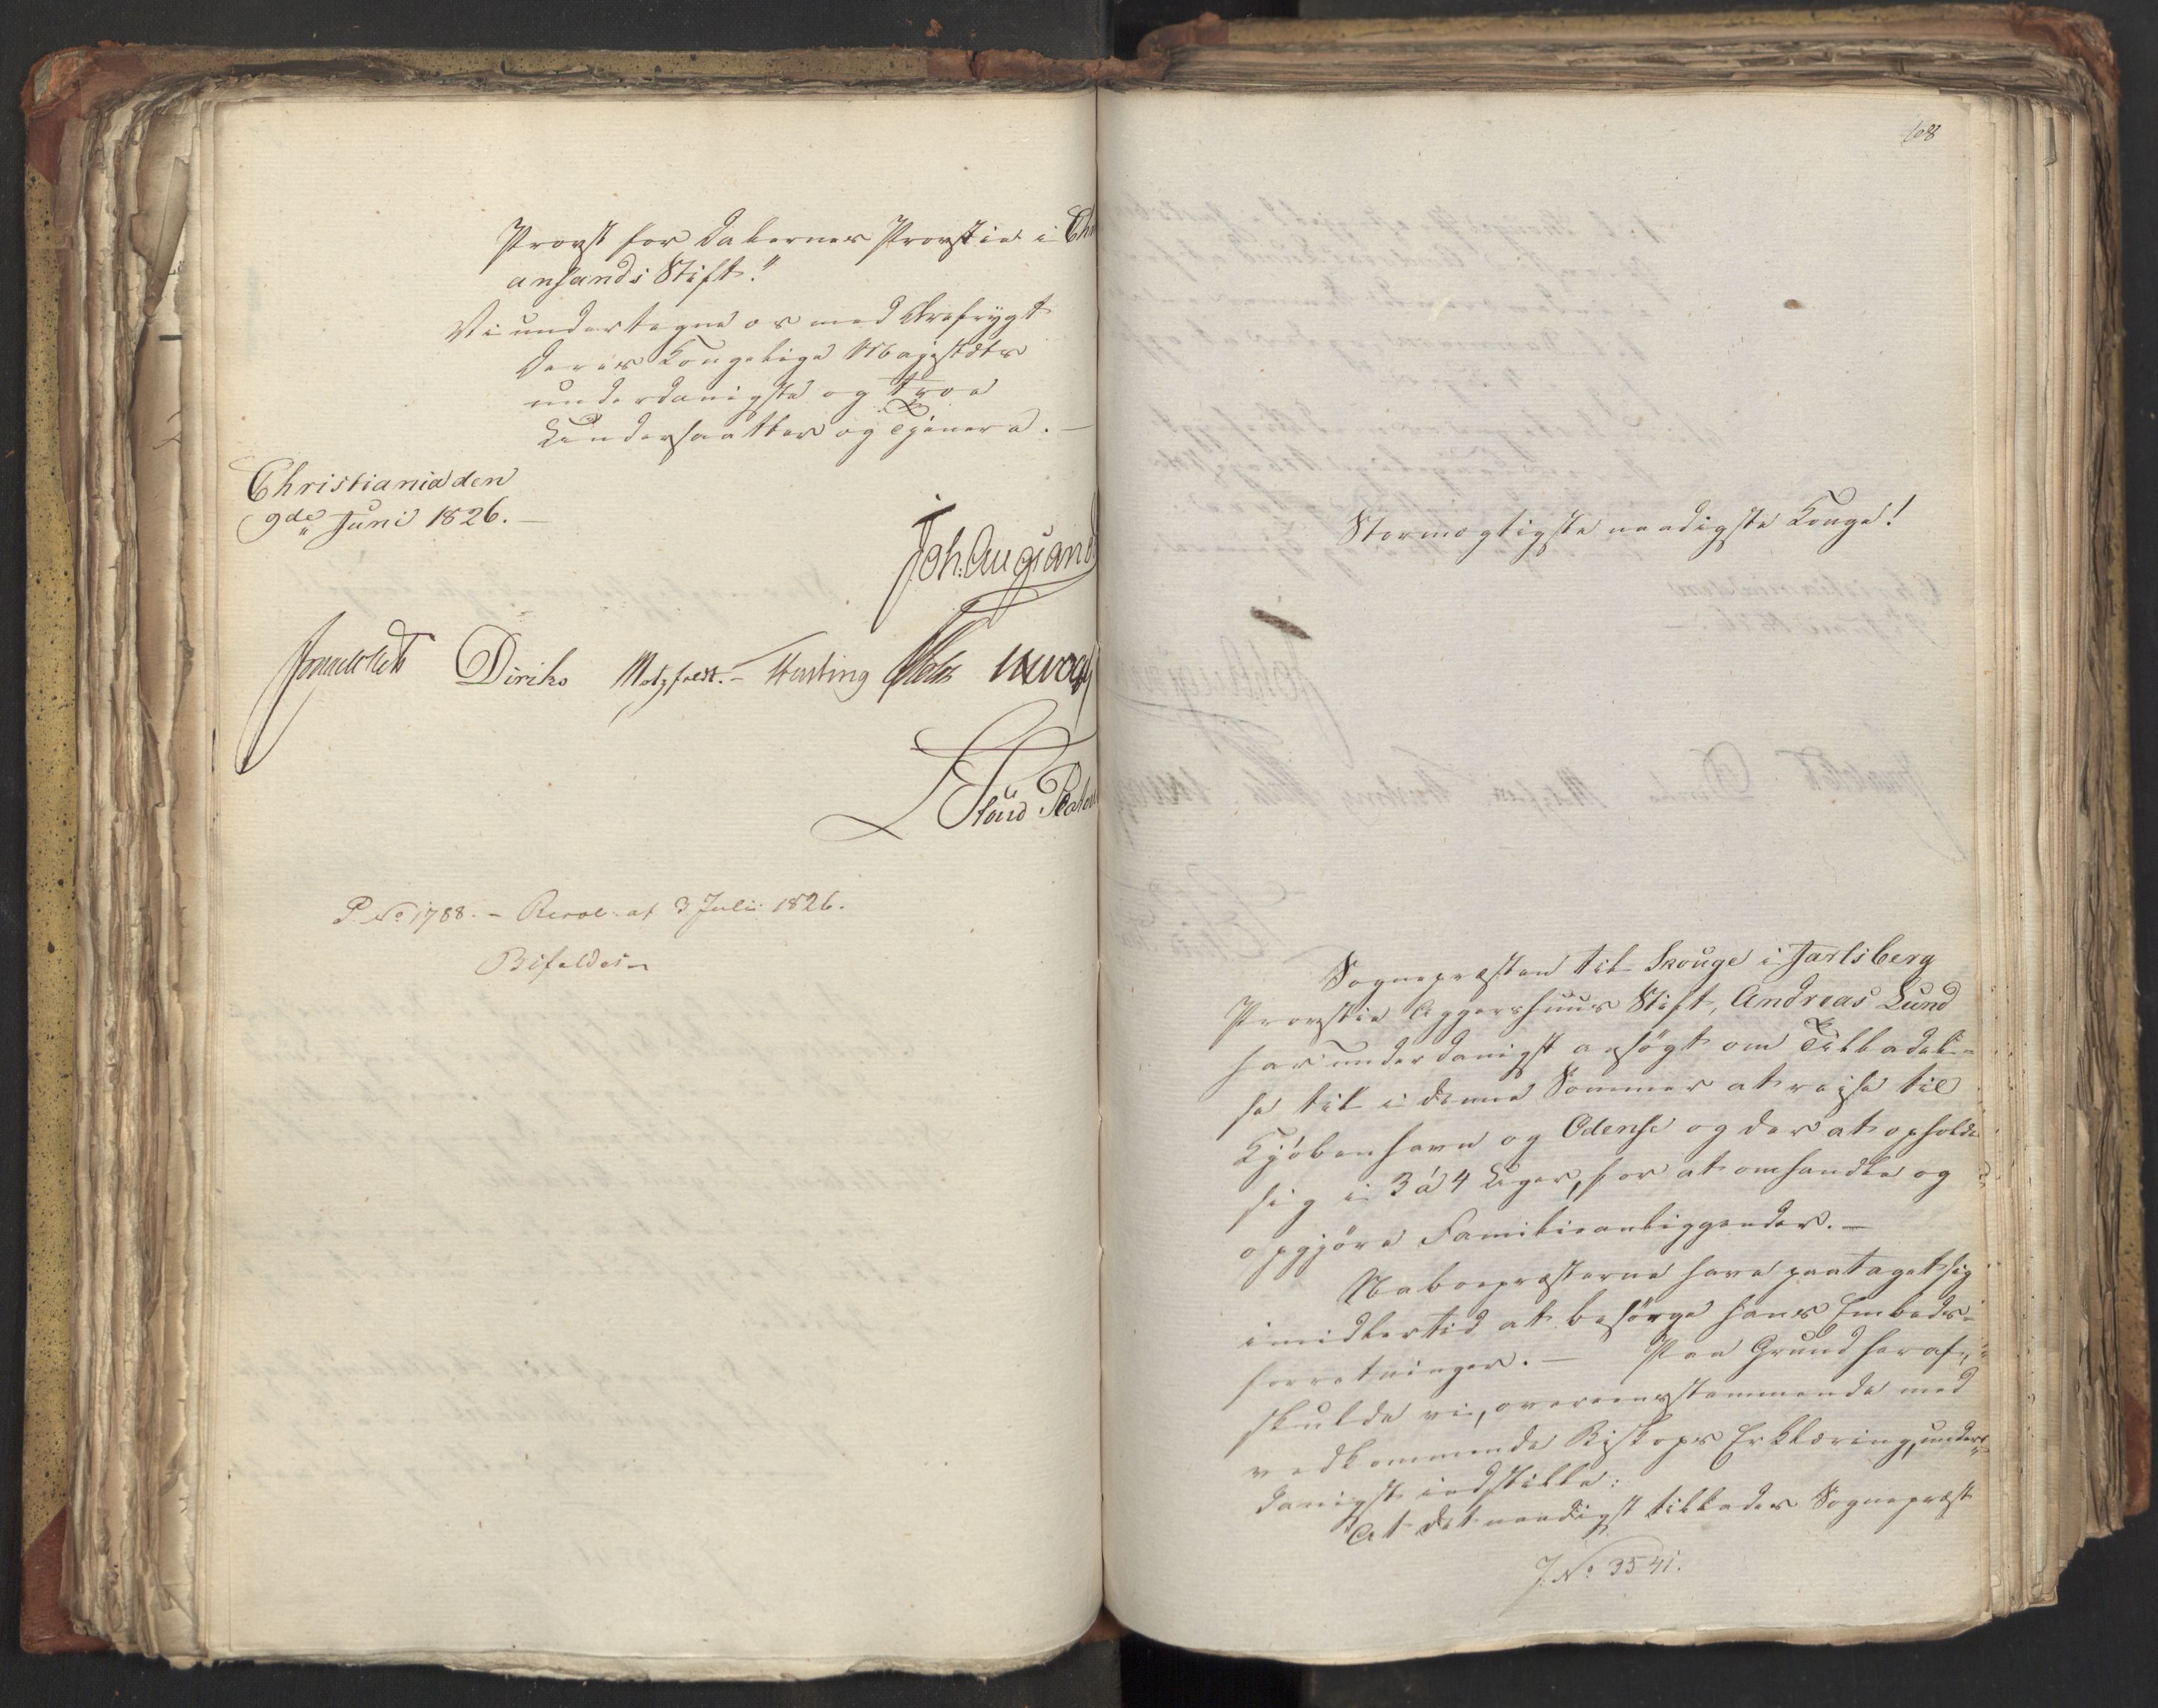 Provst for Dalernes Provstie i Chri
ansands Stift."
Vi undertegne os med Ærefrygt
Deres Kongelige Majestæts
underdanigste og troe
Undersaatter og Tjenere. —
Christiania den
9de Juni 1826. —
Joh. Aug. Sand
Diriks Motzfeldt. - Fasting
P. No 1788. - Resol. af 3 Julii 1826.
Bifaldes
108
Stormægtigste naadigste Konge!
Sognepræsten til Skouge i Jarlsberg
Provstie Aggershuus Stift, Andreas Lund
har underdanigst ansøgt om Tilladel-
se til i denne Sommer at reise til
Kjøbenhavn og Odense og der at opholde
sig i 3 á 4 Uger, for at omhandle og
opgjøre Familieanliggender. —
Naboepræsterne have paataget sig
imidlertid at besørge hans Embeds-
forretninger. — Paa Grund heraf
skulde vi, overeensstemmende med
vedkommende Biskops Erklæring, under-
danigst indstille:
At det naadigst tillades Sognepræst
J. No 3541.